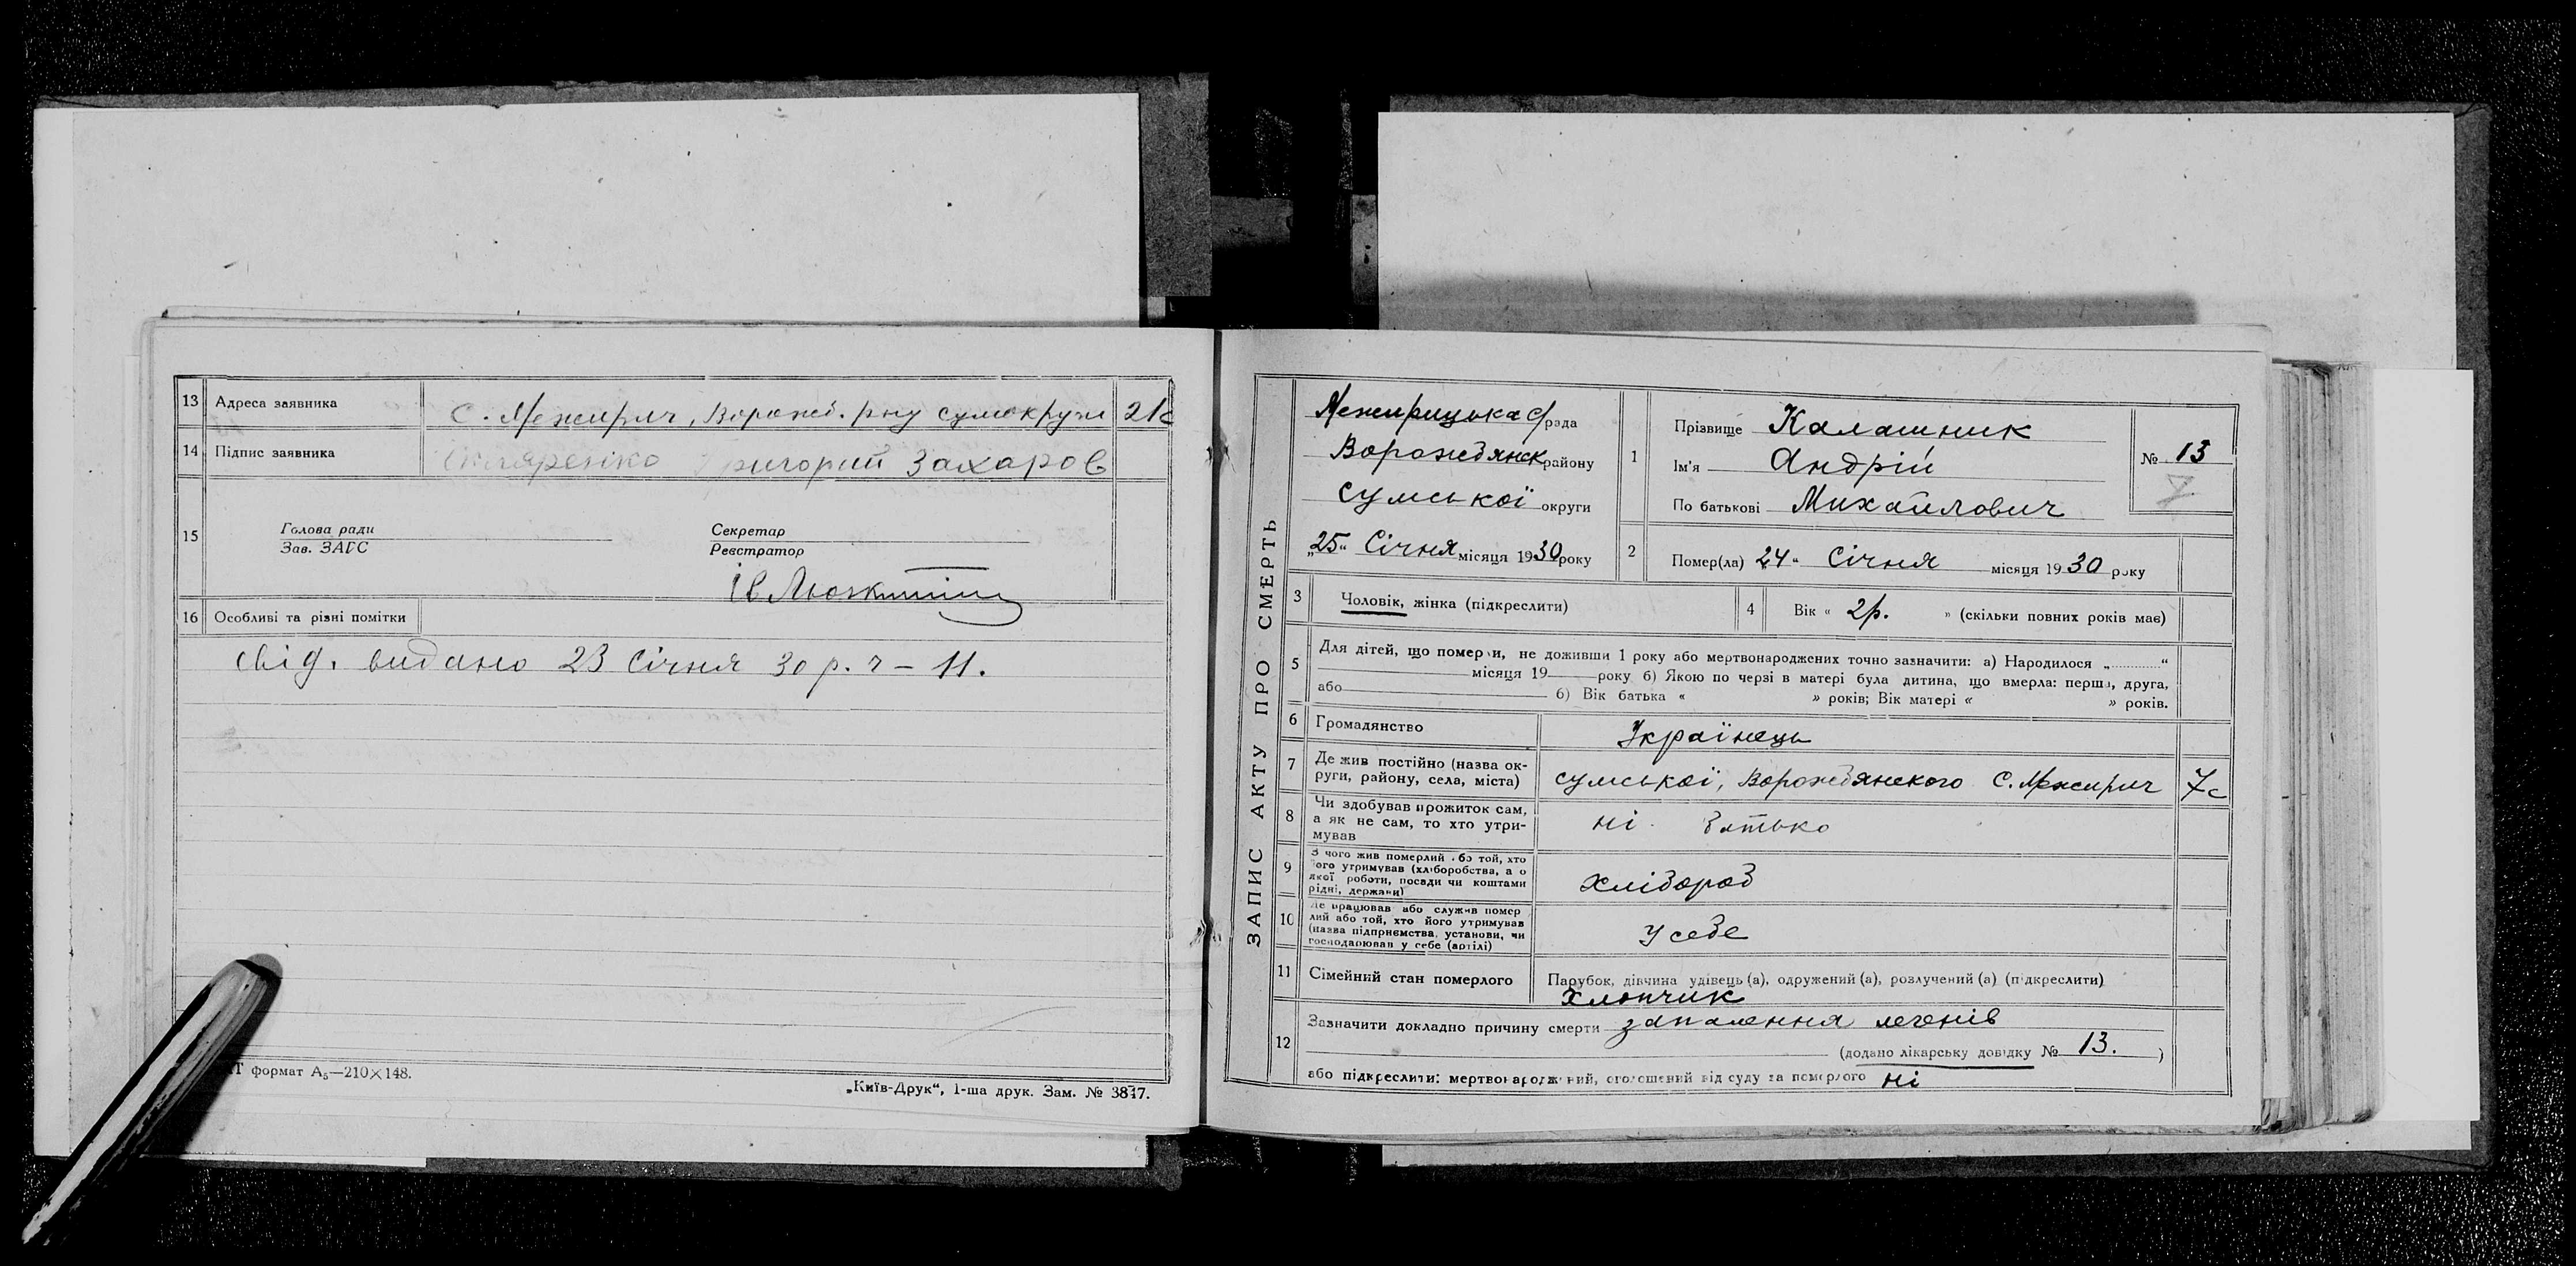 13 Адреса заявника С. Межирич, Ворожб. р-ну сумокруги 21с
14 Підпис заявника Григорий Захаров
15 Голова ради
Зав. ЗАГС
Секретар
Реєстратор
16 Особливі та різні помітки
свід. видано 23 Січня 30 р. ч – 11.
формат А5—210×148.
„Київ-Друк“, 1-ша друк. Зам. № 3847.
ЗАПИС АКТУ ПРО СМЕРТЬ
Межирицька С/рада
Ворожбянск району
сумської округи
„25“ Січня місяця 1930 року
1 Прізвище Калашник
Ім'я Андрій
По батькові Михайлович
№ 13
7
2 Помер(ла) „24“ Січня місяця 1930 року
3 Чоловік, жінка (підкреслити)
4 Вік « 2р. » (скільки повних років має)
5 Для дітей, що померли, не доживши 1 року або мертвонароджених точно зазначити: а) Народилося „ “
місяця 19 року б) Якою по черзі в матері була дитина, що вмерла: перша, друга,
або б) Вік батька « » років; Вік матері « » років.
6 Громадянство Українець
7 Де жив постійно (назва ок-
руги, району, села, міста) сумської, Ворожбянского С. Межирич 7с
8 Чи здобував прожиток сам,
а як не сам, то хто утри-
мував ні батько
9 З чого жив померлий або той, хто
його утримував (хліборобства, а о
якої роботи, посади чи коштами
рідні, держави) хлібороб
10 Де працював або служив помер
лий або той, хто його утримував
(назва підприємства, установи, чи
господарював у себе (артілі) у себе
11 Сімейний стан померлого Парубок, дівчина удівець (а), одружений (а), розлучений (а) (підкреслити)
хлопчик
12 Зазначити докладно причину смерти запалення легенів
(додано лікарську довідку № 13. )
або підкреслити: мертвонароджений, оголошений від суду за померлого ні